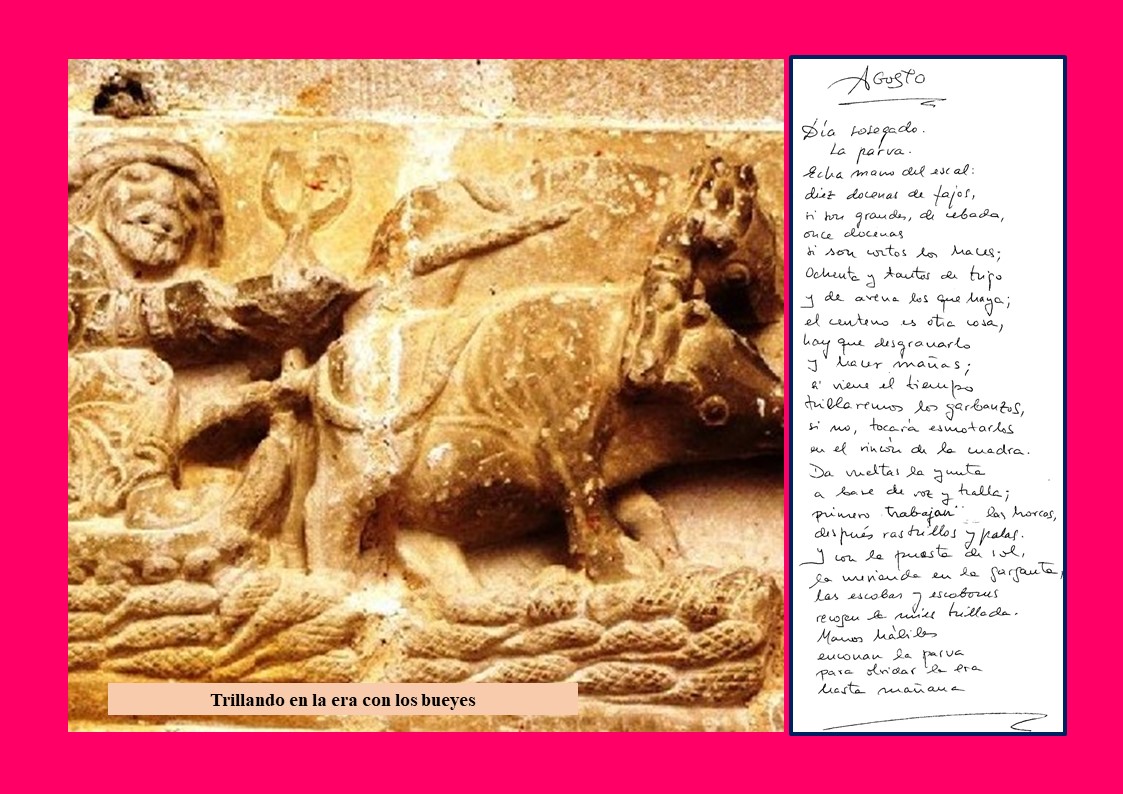 Trillando en la era con los bueyes
AGOSTO
Día sosegado.
La parva.
Echa mano del escal:
diez docenas de fajos,
si son grandes, de cebada,
once docenas
si son cortos los haces;
Ochenta y tantos de trigo
y de avena los que haya;
el centeno es otra cosa,
hay que desgranarlo
y hacer mañas;
si viene el tiempo
trillaremos los garbanzos,
si no, tocará esmotarlos
en el rincón de la cuadra.
Da vueltas la yunta
a base de voz y tralla;
primero trabajan las horcas,
después rastrillos y palas.
Y con la puesta de sol,
la merienda en la garganta,
las escobas y escobones
recogen la mies trillada.
Manos hábiles
enconan la parva
para olvidar la era
hasta mañana